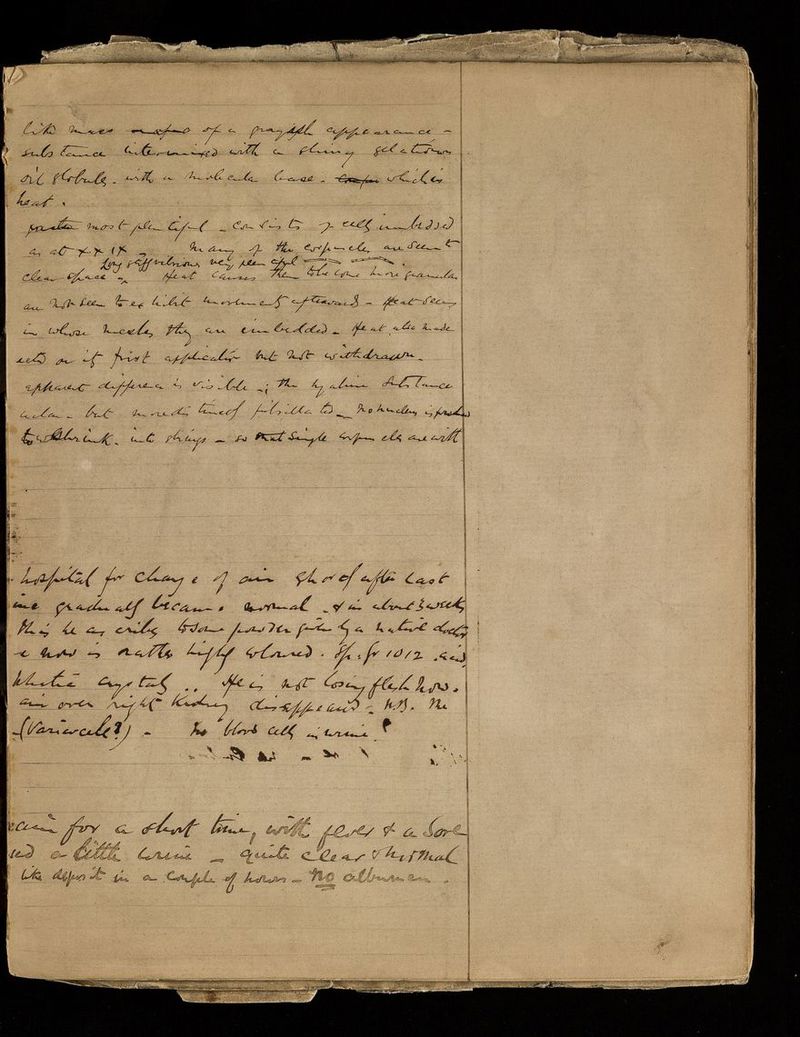 like mass of a grayish appearance -
substance intermixed with a slimy gelatinous
oil globules - with a molecular base - which is
heat.
most plentiful - consists of cells imbedded
as at x x 1x - Many of the corpuscles are seen to
long stiff vibriones very plentiful
clear space - Heat causes them to become more granular
are not seen to exhibit movements afterwards - Heat seems
in whose meshes they are imbedded - Heat also made
acts on its first application but not withdrawn -
apparent difference is visible - ; the hyaline substance
but more distinctly fibrillated - no nucleus is
to shrink - into strings - so that single corpuscles are with
hospital for change of air shortly after last
gradually became normal - & in about 3 weeks
This he ascribes to some powder given by a native doctor
now is rather highly coloured. Sp. gr 1012 acid
crystals .. He is not losing flesh now.
over right Kidney disappeared - N.B. The
(Varicocele?) - no blood cells in urine?
for a short time, with fever & a sore
a little urine - quite clear & normal
like deposit in a couple of hours - no albumen -